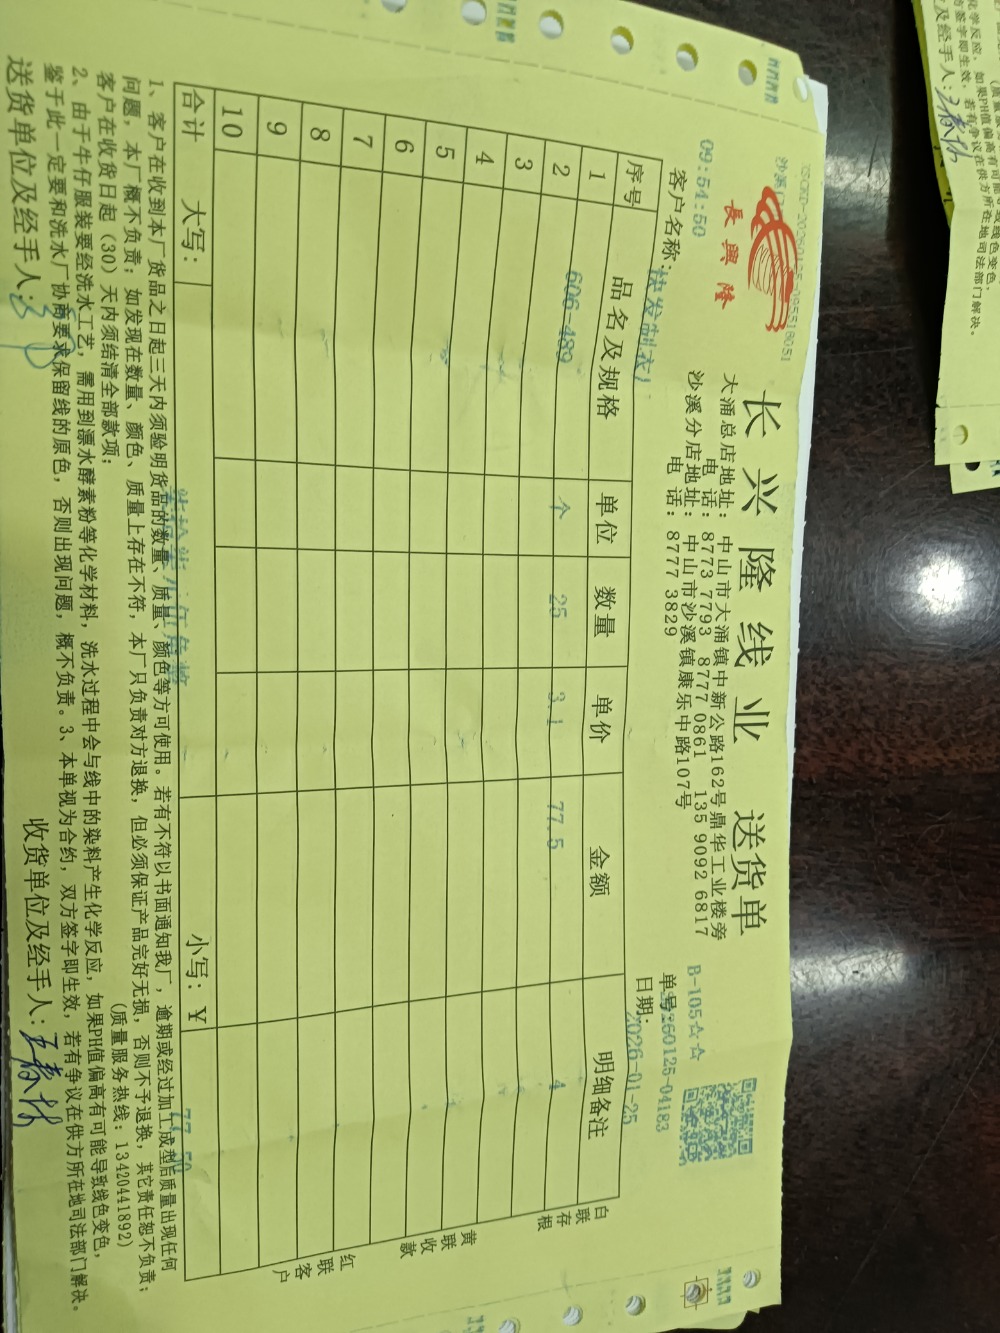 长兴隆线业 送货单
長興隆
大涌总店地址:中山市大涌镇中新公路162号鼎华工业楼旁
电话:8773 7793 8777 0861 135 9092 6817
沙溪分店地址:中山市沙溪镇康乐中路107号
电话:8777 3829
09:54:50
B-105☆☆
单号:
260125-04183
客户名称:快发制衣厂
日期:2026-01-25
序号 品名及规格 单位 数量 单价 金额 明细备注
1 606-489 个 25 3.1 77.5 4
2
3
4
5
6
7
8
9
10
合计 大写: 柒拾柒元伍角整 小写:¥ 77.50
白联存根
黄联收款
红联客户
1、客户在收到本厂货品之日起三天内须验明货品的数量、质量、颜色等方可使用。若有不符以书面通知我厂,逾期或经过加工成型后质量出现任何
问题,本厂概不负责;如发现在数量、颜色、质量上存在不符,本厂只负责对方退换,但必须保证产品完好无损,否则不予退换,其它责任恕不负责;
客户在收货日起(30)天内须结清全部款项; (质量服务热线:13420441892)
2、由于牛仔服装要经洗水工艺,需用到漂水酵素粉等化学材料,洗水过程中会与线中的染料产生化学反应,如果PH值偏高有可能导致线色变色,
鉴于此一定要和洗水厂协商要求保留线的原色,否则出现问题,概不负责。3、本单视为合约,双方签字即生效,若有争议在供方所在地司法部门解决。
送货单位及经手人:
收货单位及经手人:
化学反应,如果PH值偏高有可能导致线色变色,
方签字即生效,若有争议在供方所在地司法部门解决。
及经手人: